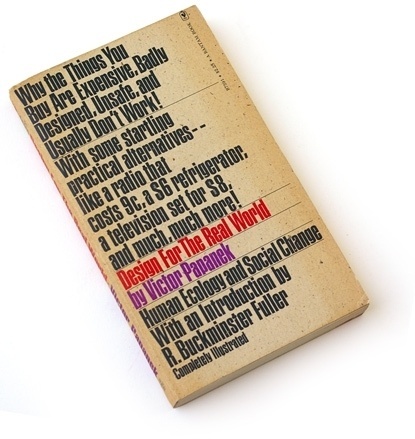 Why the Things You
Buy Are Expensive, Badly
Designed, Unsafe, and
Usually Don't Work!
With some startling
practical alternatives--
like a radio that
costs 9¢, a $6 refrigerator,
a television set for $8,
and much, much more!
Design For The Real World
by Victor Papanek
Human Ecology and Social Change
With an Introduction by
R. Buckminster Fuller
Completely Illustrated
A BANTAM BOOK